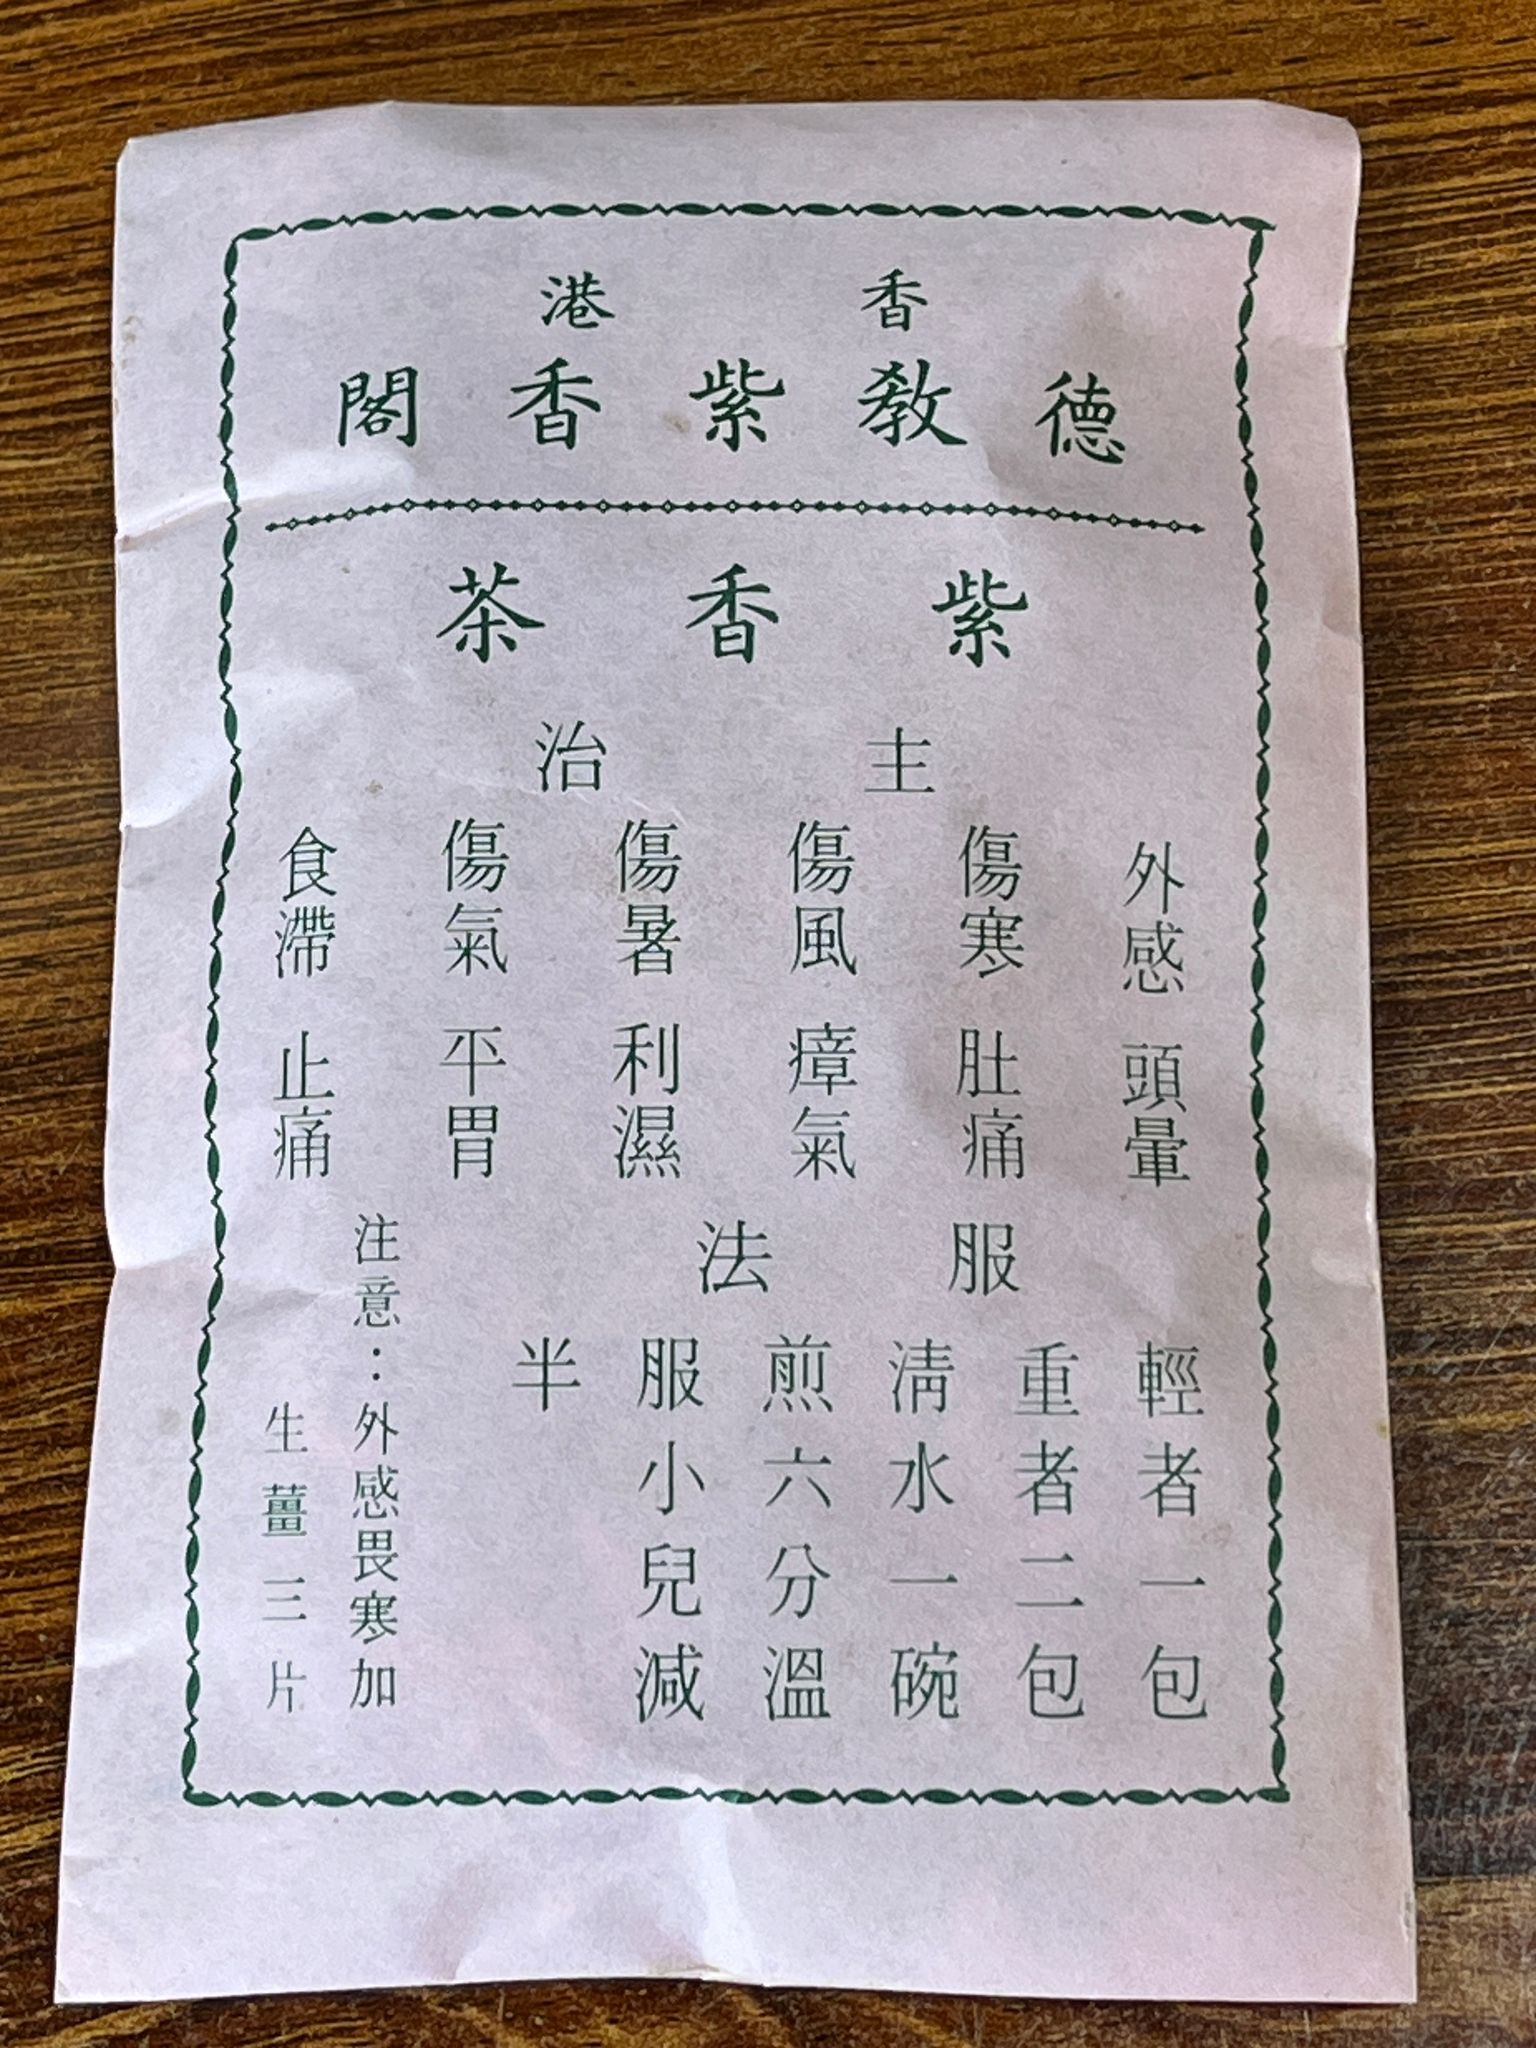 香港
德教紫香閣
紫香茶
主治
外感 頭暈
傷寒 肚痛
傷風 瘴氣
傷暑 利濕
傷氣 平胃
食滯 止痛
服法
輕者一包
重者二包
清水一碗
煎六分溫
服小兒減
半
注意：外感畏寒加
生薑三片